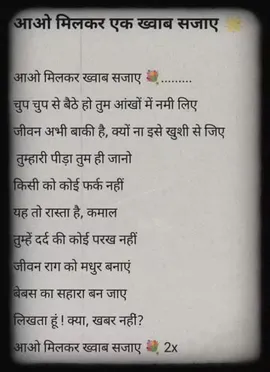 आओ मिलकर एक ख्वाब सजाए 🌟
आओ मिलकर ख्वाब सजाए 💐.........
चुप चुप से बैठे हो तुम आंखों में नमी लिए
जीवन अभी बाकी है, क्यों ना इसे खुशी से जिए
तुम्हारी पीड़ा तुम ही जानो
किसी को कोई फर्क नहीं
यह तो रास्ता है, कमाल
तुम्हें दर्द की कोई परख नहीं
जीवन राग को मधुर बनाएं
बेबस का सहारा बन जाए
लिखता हूं ! क्या, खबर नहीं?
आओ मिलकर ख्वाब सजाए 💐 2x